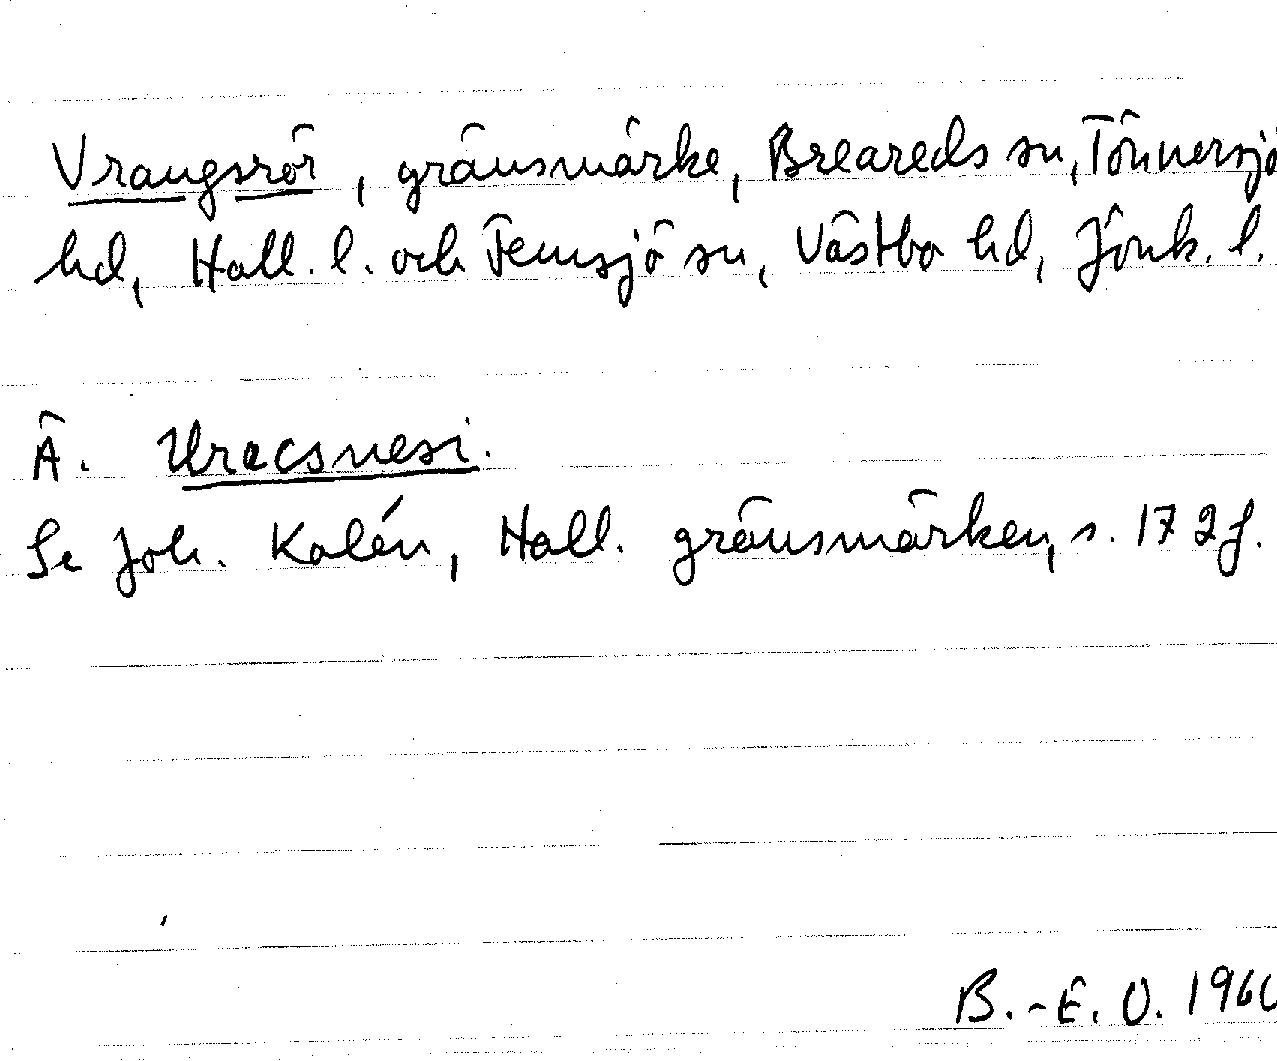 Vrangsrör, gränsmärke, Breareds sn, Tönnersjö
hd, Hall. l. och Femsjö sn, Västbo hd, Jönk. l.
Ä. Uracsnesi.
Se Joh. Kalén, Hall. gränsmärken, s. 172f.
B.-E. O. 196